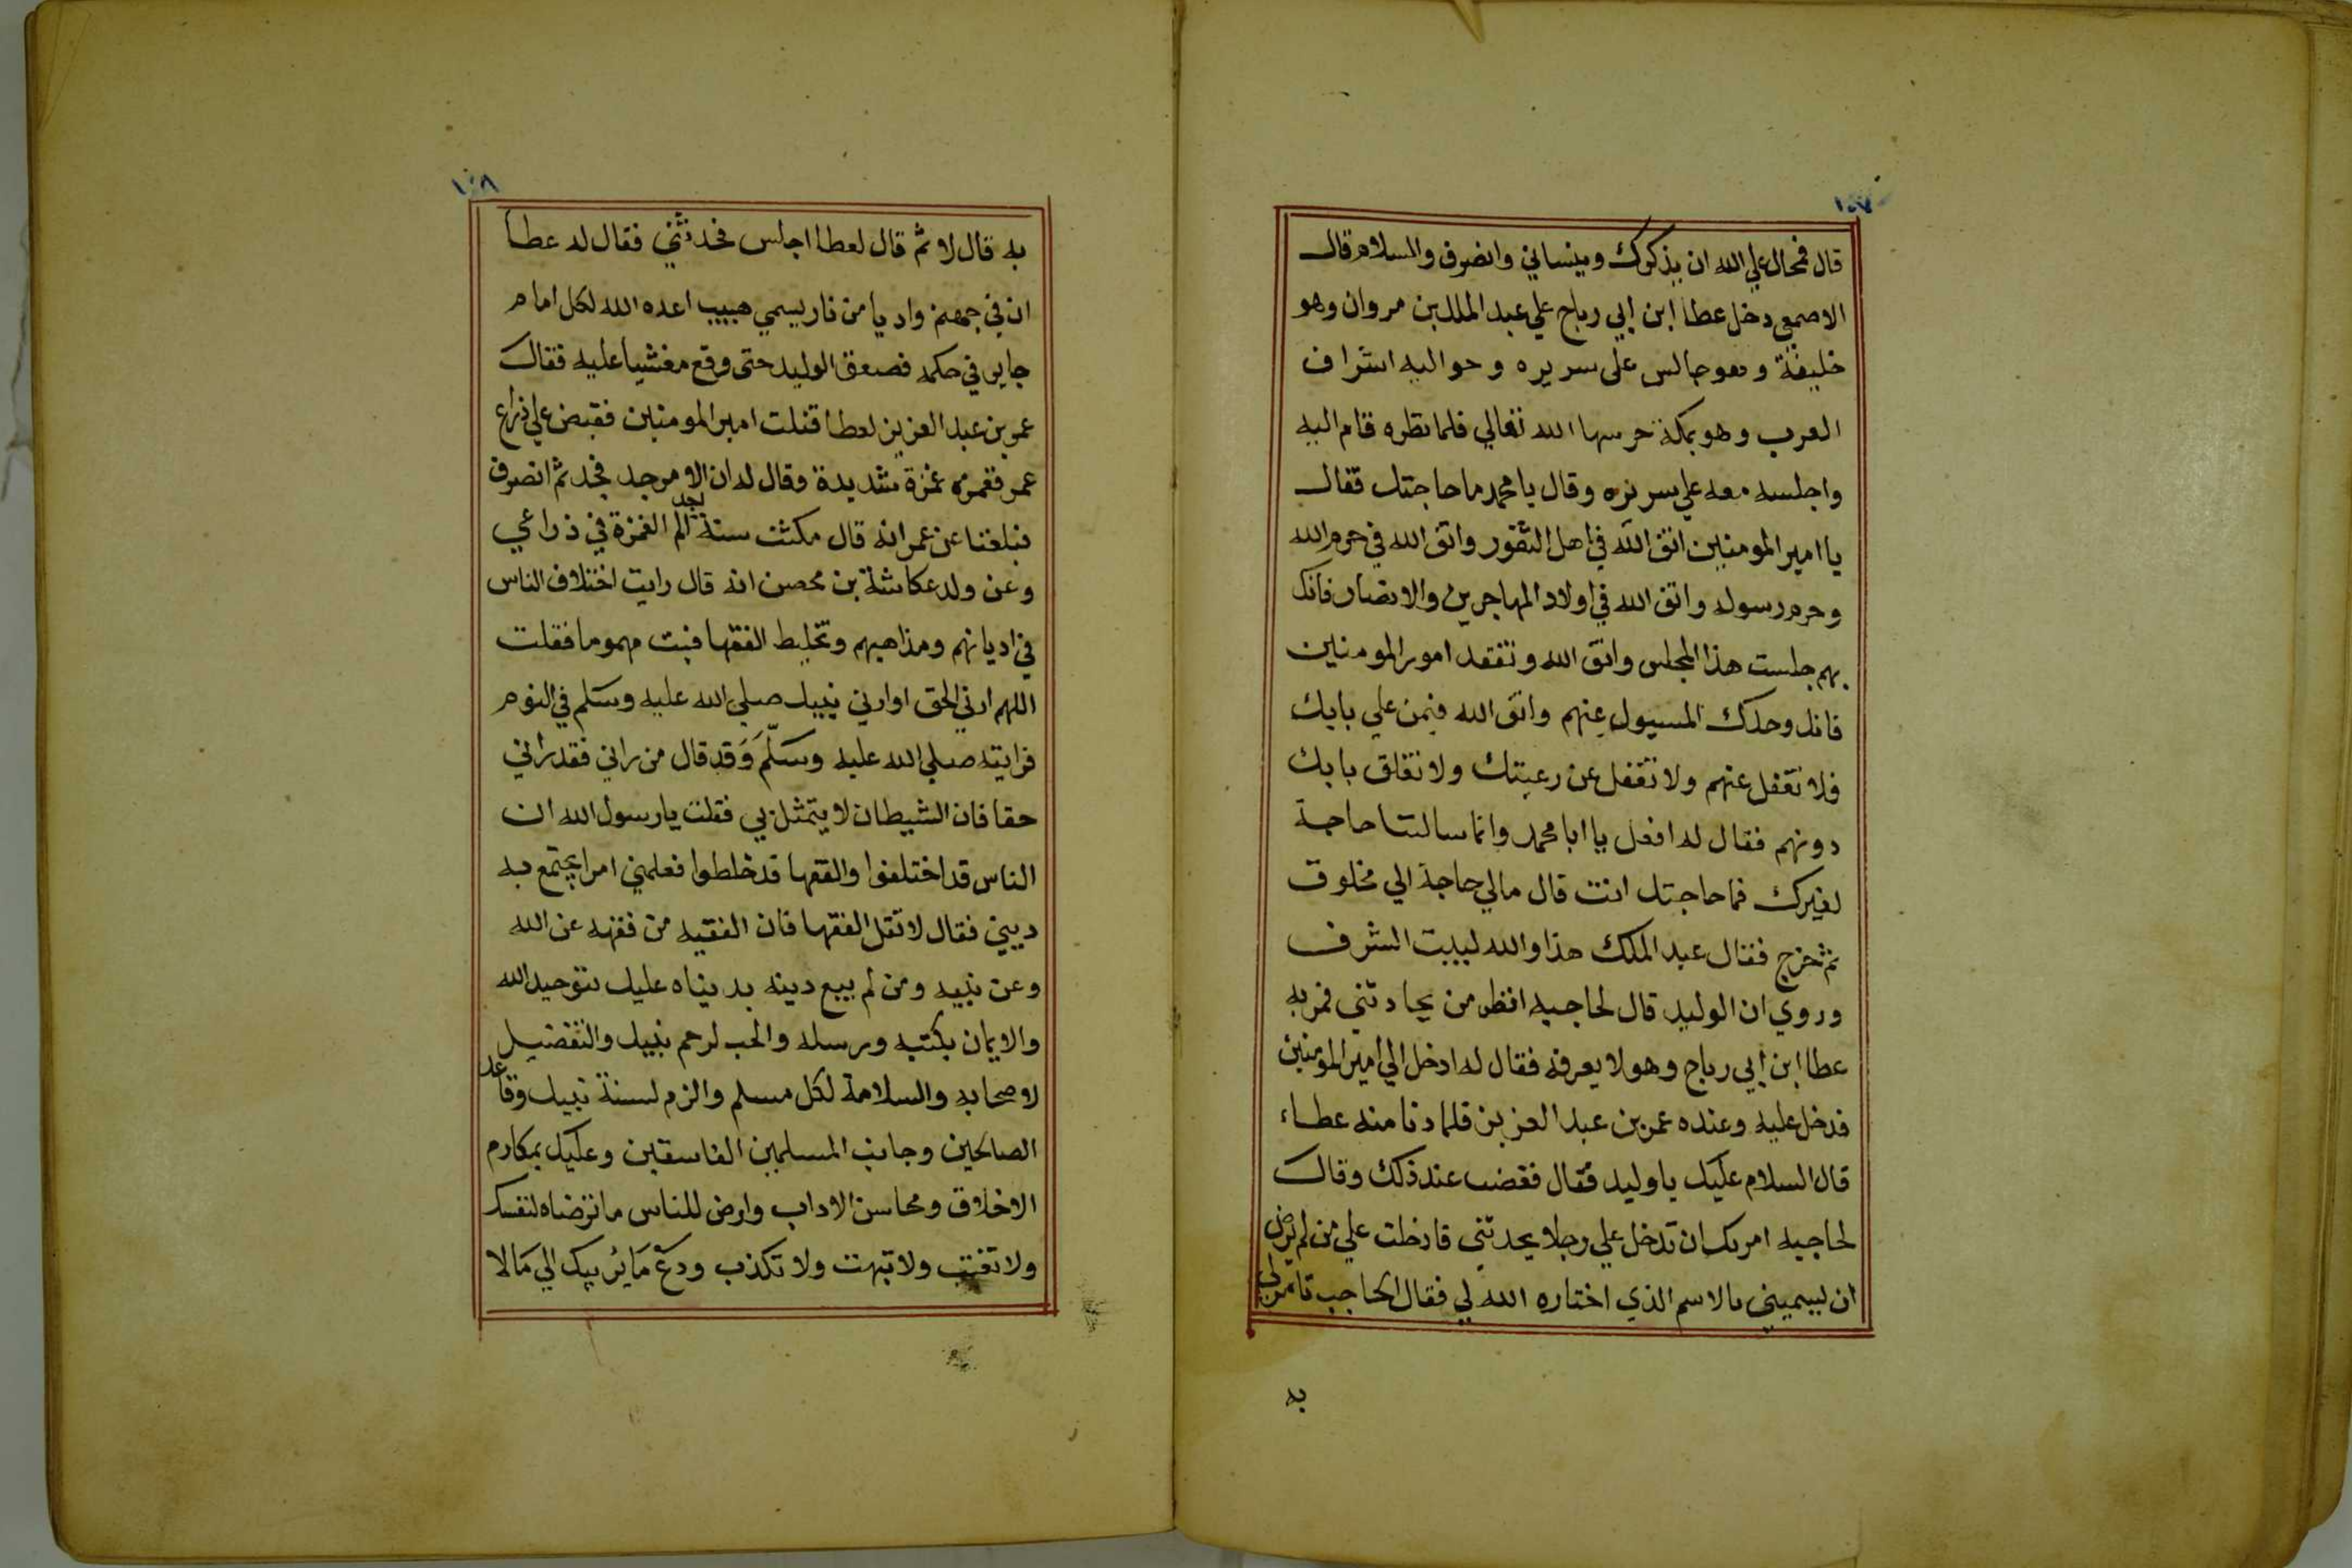 ١٠٧
قال فمحال علي الله ان يذكرك وينساني وانصرف والسلام قال
الاصمعي دخل عطا ابن ابي رباح علي عبد الملك بن مروان وهو
خليفة وهو جالس على سريره وحواليه اشراف
العرب وهو بمكة حرسها الله تعالي فلما نظره قام اليه
واجلسه معه علي سريره وقال يا محمد ما حاجتك فقال
يا امير المومنين اتق الله في اهل الثغور واتق الله في حرم الله
وحرم رسوله واتق الله في اولاد المهاجرين والانصار فانك
بهم جلست هذا المجلس واتق الله وتفقد امور المومنين
فانك وحدك المسيول عنهم واتق الله فيمن علي بابك
فلا تغفل عنهم ولا تغفل عن رعيتك ولا تغلق بابك
دونهم فقال له افعل يا ابا محمد وانما سالتنا حاجة
لغيرك فما حاجتك انت قال مالي حاجة الي مخلوق
ثم خرج فقال عبد الملك هذا والله لبيت الشرف
وروي ان الوليد قال لحاجبه انظر من يحادثني فمر به
عطا ابن ابي رباح وهو لا يعرفه فقال له ادخل الي امير المؤمنين
فدخل عليه وعنده عمر بن عبد العزيز فلما دنا منه عطاء
قال السلام عليك يا وليد فقال فغضب عند ذلك وقال
لحاجبه امرتك ان تدخل علي رجلا يحدثني فادخلت علي من لم يرض
ان يسميني بالاسم الذي اختاره الله لي فقال الحاجب تامرني
به
١٠٨
به قال لا ثم قال لعطا اجلس فحدثني فقال له عطا
ان في جهنم واديا من نار يسمي هبيب اعده الله لكل امام
جاير في حكمه فصعق الوليد حتى وقع مغشيا عليه فقال
عمر بن عبد العزيز لعطا قتلت امير المومنين فقبض علي ذراع
عمر فغمزه غمزة شديدة وقال له ان الامر جد فجد ثم انصرف
فبلغنا عن عمر انه قال مكثت سنة اجد الم الغمزة في ذراعي
وعن ولد عكاشة بن محصن انه قال رايت اختلاف الناس
في اديانهم ومذاهبهم وتخليط الفقها فبت مهموما فقلت
اللهم ارني الحق او ارني نبيك صلي الله عليه وسلم في النوم
فرايته صلي الله عليه وَسَلّمَ وَقد قال من راني فقد رأني
حقا فان الشيطان لا يتمثل بي فقلت يا رسول الله ان
الناس قد اختلفوا والفقها قد خلطوا فعلمني امرا يجتمع به
ديني فقال لا تقل الفقها فان الفقيه من فقهه عن الله
وعن نبيه ومن لم يبيع دينه بدنياه عليك بتوحيد الله
والايمان بكتبه ورسله والحب لرحم نبيك والتفضيل
لاصحابه والسلامة لكل مسلم والزم لسنة نبيك وقاعد
الصالحين وجانب المسلمين الفاسقين وعليك بمكارم
الاخلاق ومحاسن الاداب وارض للناس ما ترضاه لنفسك
ولا تغتب ولا تبهت ولا تكذب ودع مَا يُريبك الي مَا لا